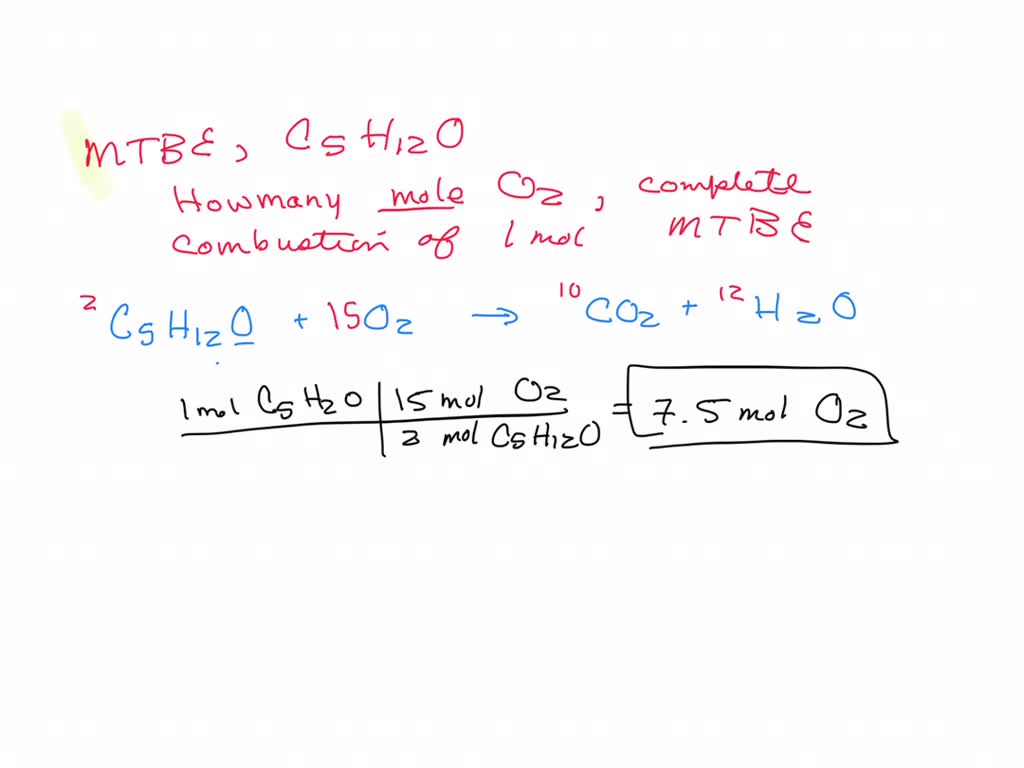 MTBE, C5H12O
Howmany mole O2, complete
combustion of 1 mol MTBE
2 C5H12O + 15O2 → 10 CO2 + 12 H2O
1 mol C5H2O | 15 mol O2 = 7.5 mol O2
2 mol C5H12O